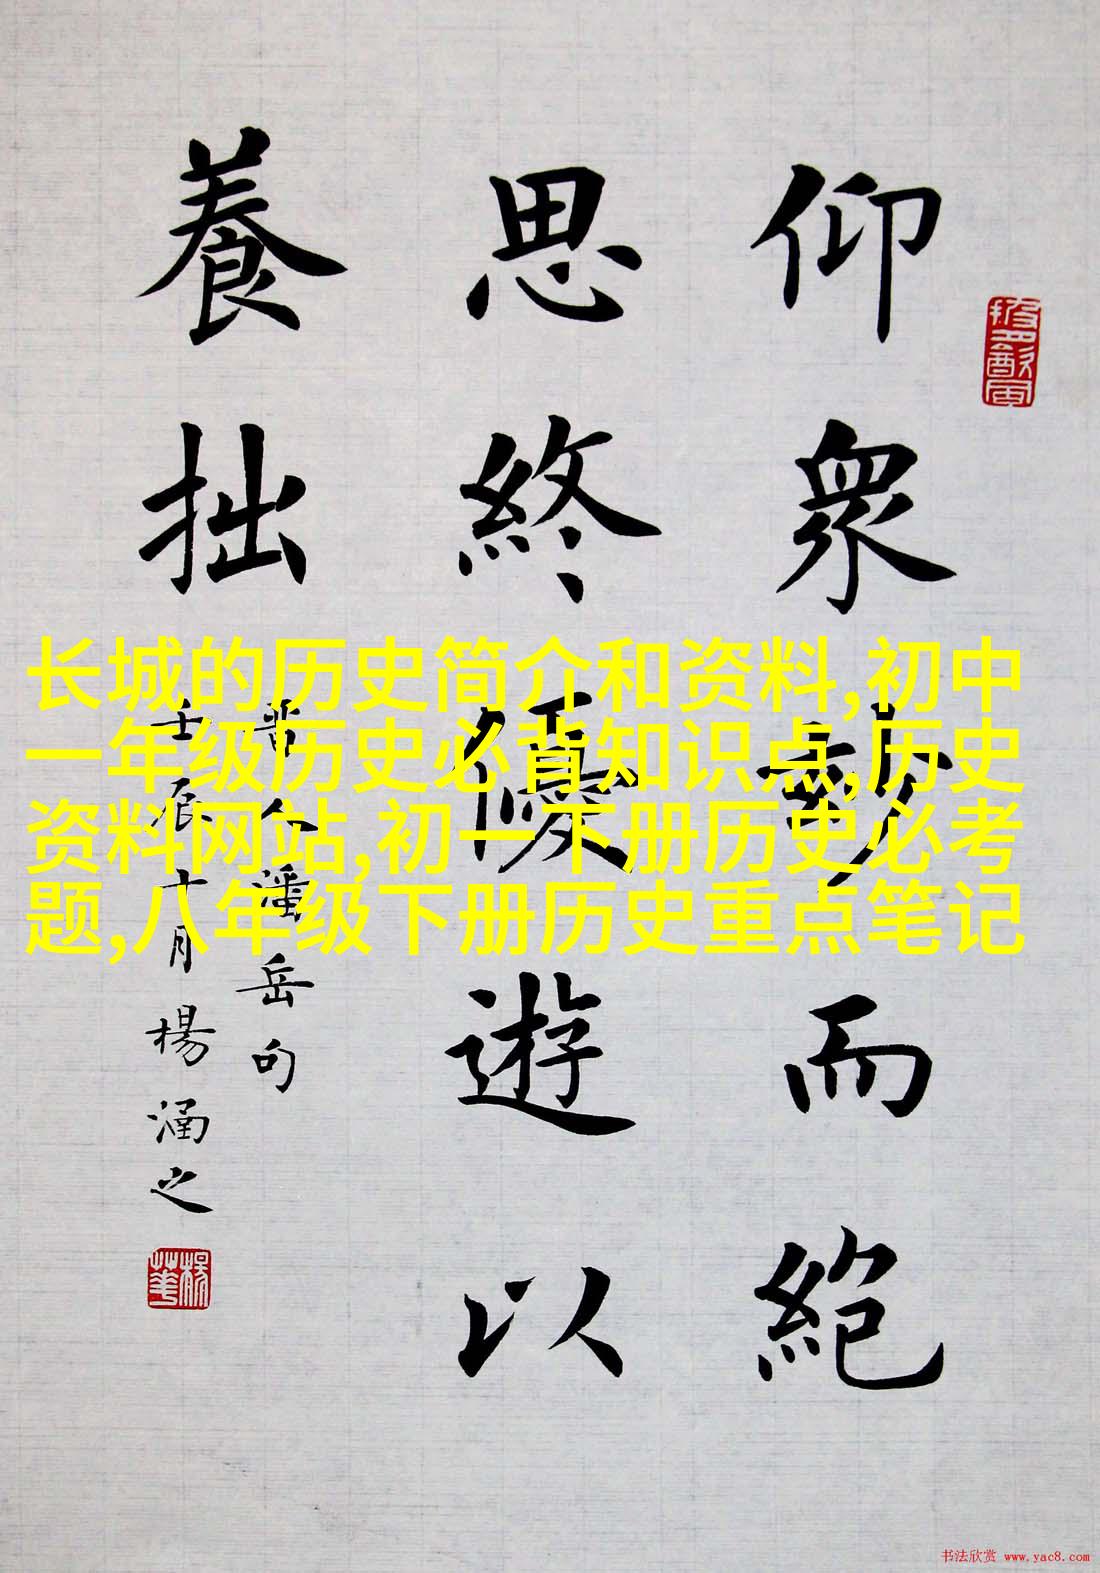 仰眾玅而絕
思終優遊以
養拙
晋人潘岳句
壬辰十月楊涵之
长城的历史简介和资料,初中
一年级历史必背知识点,历史
资料网站,初一下册历史必考
题,八年级下册历史重点笔记
书法欣赏 www.yac8.com